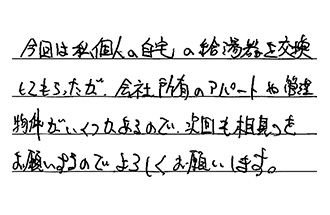 今回は私個人の自宅の給湯器を交換
してもらったが、会社所有のアパートや管理
物件がいくつかあるので、次回も相見つを
お願いするのでよろしくお願いします。